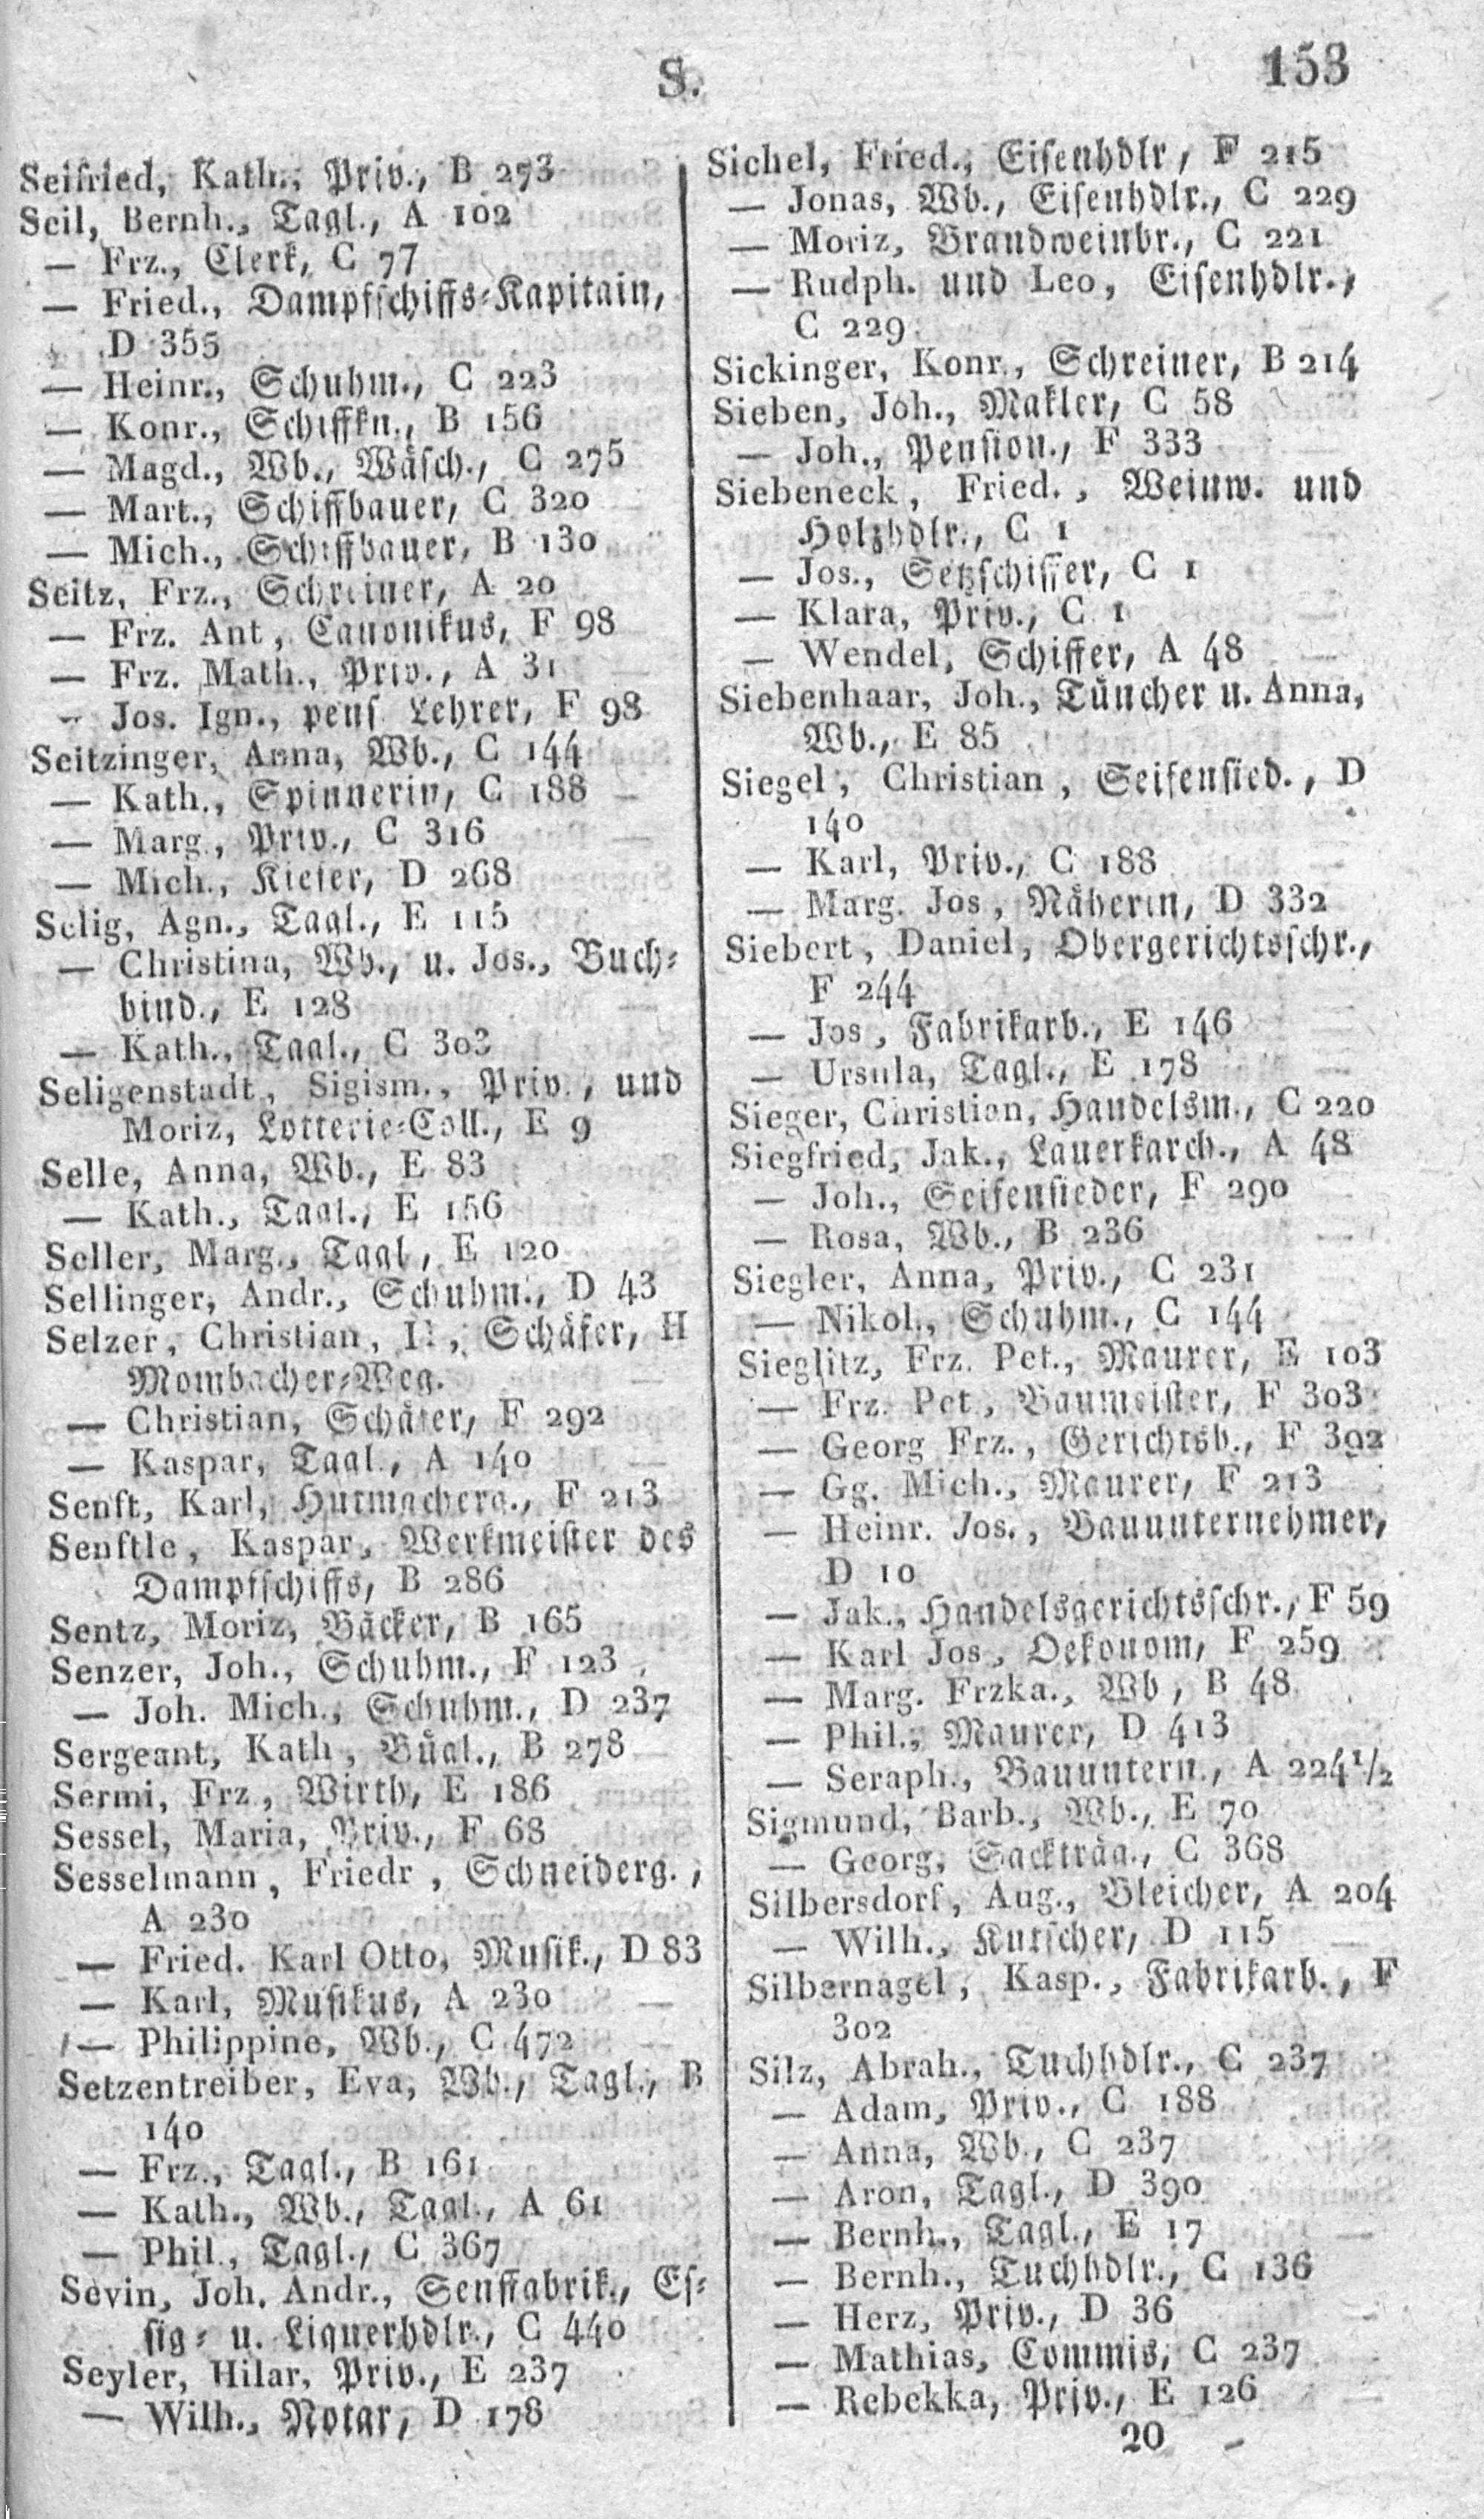 S.
153
Seifried, Kath., Priv., B 273
Seil, Bernh., Tagl., A 102
— Frz., Clerk, C 77
— Fried., Dampfschiffs-Kapitain,
D 355
— Heinr., Schuhm., C 223
— Konr., Schiffkn., B 156
— Magd., Wb., Wäsch., C 275
— Mart., Schiffbauer, C 320
— Mich., Schiffbauer, B 130
Seitz, Frz., Schreiner, A 20
— Frz. Ant, Canonikus, F 98
— Frz. Math., Priv., A 31
— Jos. Ign., pens. Lehrer, F 98
Seitzinger, Anna, Wb., C 144
— Kath., Spinnerin, C 188
— Marg., Priv., C 316
— Mich., Kiefer, D 268
Selig, Agn., Tagl., E 115
— Christina, Wb., u. Jos., Buch-
bind., E 128
— Kath., Tagl., C 303
Seligenstadt, Sigism., Priv., und
Moriz, Lotterie-Coll., E 9
Selle, Anna, Wb., E 83
— Kath., Tagl., E 156
Seller, Marg., Tagl, E 120
Sellinger, Andr., Schuhm., D 43
Selzer, Christian, II, Schäfer, H
Mombacher-Weg.
— Christian, Schäfer, F 292
— Kaspar, Tagl., A 140
Senft, Karl, Hutmacherg., F 213
Senftle, Kaspar, Werkmeister des
Dampfschiffs, B 286
Sentz, Moriz, Bäcker, B 165
Senzer, Joh., Schuhm., F 123
— Joh. Mich., Schuhm., D 237
Sergeant, Kath, Bügl., B 278
Sermi, Frz., Wirth, E 186
Sessel, Maria, Priv., F 68
Sesselmann, Friedr, Schneiderg.,
A 230
— Fried. Karl Otto, Musik., D 83
— Karl, Musikus, A 230
— Philippine, Wb., C 472
Setzentreiber, Eva, Wb., Tagl., B
140
— Frz., Tagl., B 161
— Kath., Wb., Tagl., A 61
— Phil., Tagl., C 367
Sevin, Joh. Andr., Senffabrik., Es-
sig- u. Liquerhdlr., C 440
Seyler, Hilar, Priv., E 237
— Wilh., Notar, D 178
Sichel, Fried., Eisenhdlr, F 215
— Jonas, Wb., Eisenhdlr., C 229
— Moriz, Brandweinbr., C 221
— Rudph. und Leo, Eisenhdlr.,
C 229
Sickinger, Konr., Schreiner, B 214
Sieben, Joh., Makler, C 58
— Joh., Pension., F 333
Siebeneck, Fried., Weinw. und
Holzhdlr., C 1
— Jos., Setzschiffer, C 1
— Klara, Priv., C 1
— Wendel, Schiffer, A 48
Siebenhaar, Joh., Tüncher u. Anna,
Wb., E 85
Siegel, Christian, Seifensied., D
140
— Karl, Priv., C 188
— Marg. Jos, Näherin, D 332
Siebert, Daniel, Obergerichtsschr.,
F 244
— Jos, Fabrikarb., E 146
— Ursula, Tagl., E 178
Sieger, Christian, Handelsm., C 220
Siegfried, Jak., Lauerkarch., A 48
— Joh., Seifensieder, F 290
— Rosa, Wb., B 236
Siegler, Anna, Priv., C 231
— Nikol., Schuhm., C 144
Sieglitz, Frz. Pet., Maurer, E 103
— Frz. Pet, Baumeister, F 303
— Georg Frz., Gerichtsb., F 392
— Gg. Mich., Maurer, F 213
— Heinr. Jos., Bauunternehmer,
D 10
— Jak., Handelsgerichtsschr., F 59
— Karl Jos, Oekonom, F 259
— Marg. Frzka., Wb, B 48
— Phil., Maurer, D 413
— Seraph., Bauuntern., A 224 1/2
Sigmund, Barb., Wb., E 70
— Georg, Sackträg., C 368
Silbersdorf, Aug., Bleicher, A 204
— Wilh., Kutscher, D 115
Silbernagel, Kasp., Fabrikarb., F
302
Silz, Abrah., Tuchhdlr., C 237
— Adam, Priv., C 188
— Anna, Wb., C 237
— Aron, Tagl., D 390
— Bernh., Tagl., E 17
— Bernh., Tuchhdlr., C 136
— Herz, Priv., D 36
— Mathias, Commis, C 237
— Rebekka, Priv., E 126
20